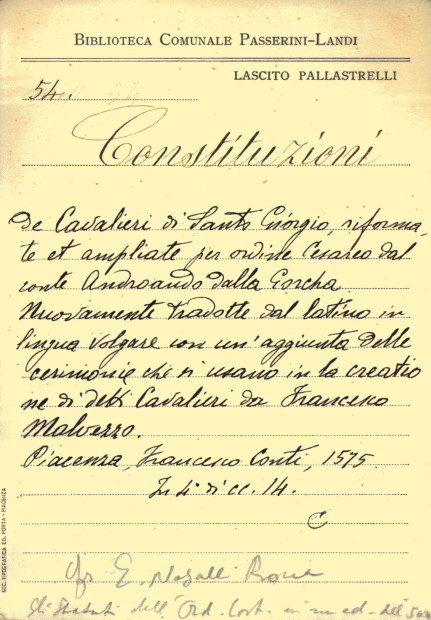 BIBLIOTECA COMUNALE PASSERINI-LANDI
LASCITO PALLASTRELLI
54.
Constituzioni
De Cavalieri di Santo Giorgio, riforma-
te et ampliate per ordine Cesareo dal
conte Androando dalla Gorcha
Nuovamente tradotte dal latino in
lingua volgare con un' aggiunta delle
cerimonie che si usano in la creatio
ne di detti Cavalieri da Francesco
Malvezzo.
Piacenza, Francesco Conti, 1575
In 4° di cc. 14.
C
E. Nasalli Rocca
Gli Statuti dell' Ord. Cost. in
SOC. TIPOGRAFICA ED. PORTA - PIACENZA